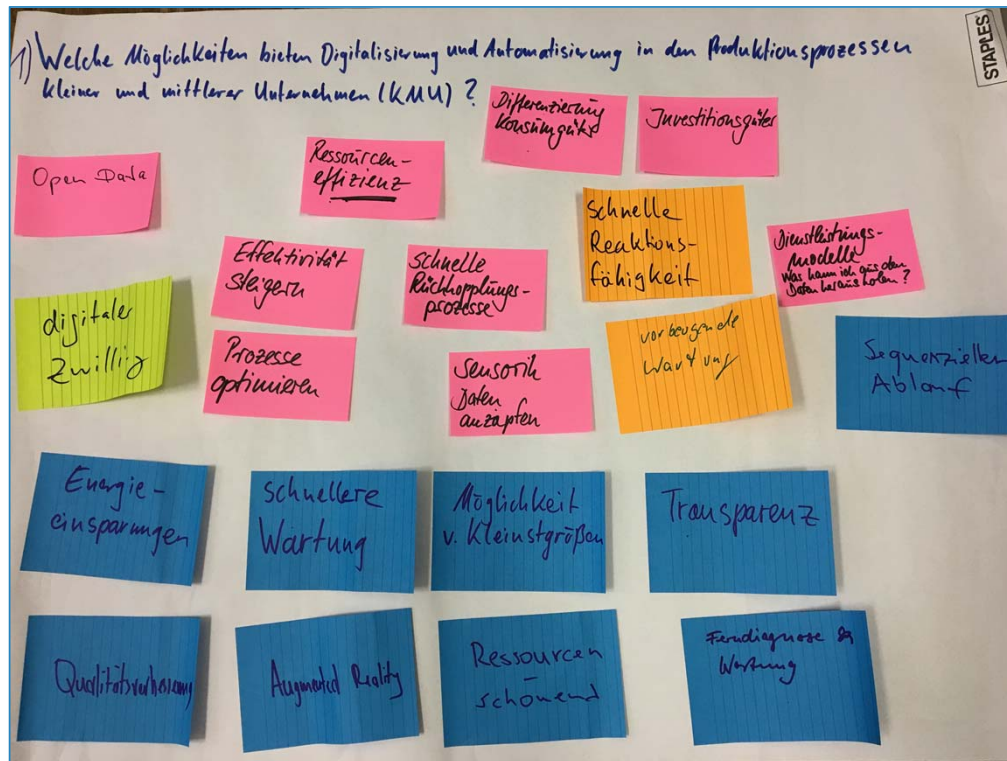 1) Welche Möglichkeiten bieten Digitalisierung und Automatisierung in den Produktionsprozessen
kleiner und mittlerer Unternehmen (KMU)?
STAPLES
Differenzierung
Konsumgüter
Investitionsgüter
Open Data
Ressourcen-
effizienz
schnelle
Reaktions-
fähigkeit
Dienstleistungs-
modelle
Was kann ich aus den
Daten herausholen?
Effektivität
steigern
schnelle
Rückkopplungs-
prozesse
digitaler
Zwillig
Prozesse
optimieren
Sensorik
Daten
anzapfen
vorbeugende
Wartung
Sequenzieller
Ablauf
Energie-
einsparungen
schnellere
Wartung
Möglichkeit
v. Kleinstgrößen
Transparenz
Qualitätsverbesserung
Augmented Reality
Ressourcen
-
schönend
Ferndiagnose &
Wartung